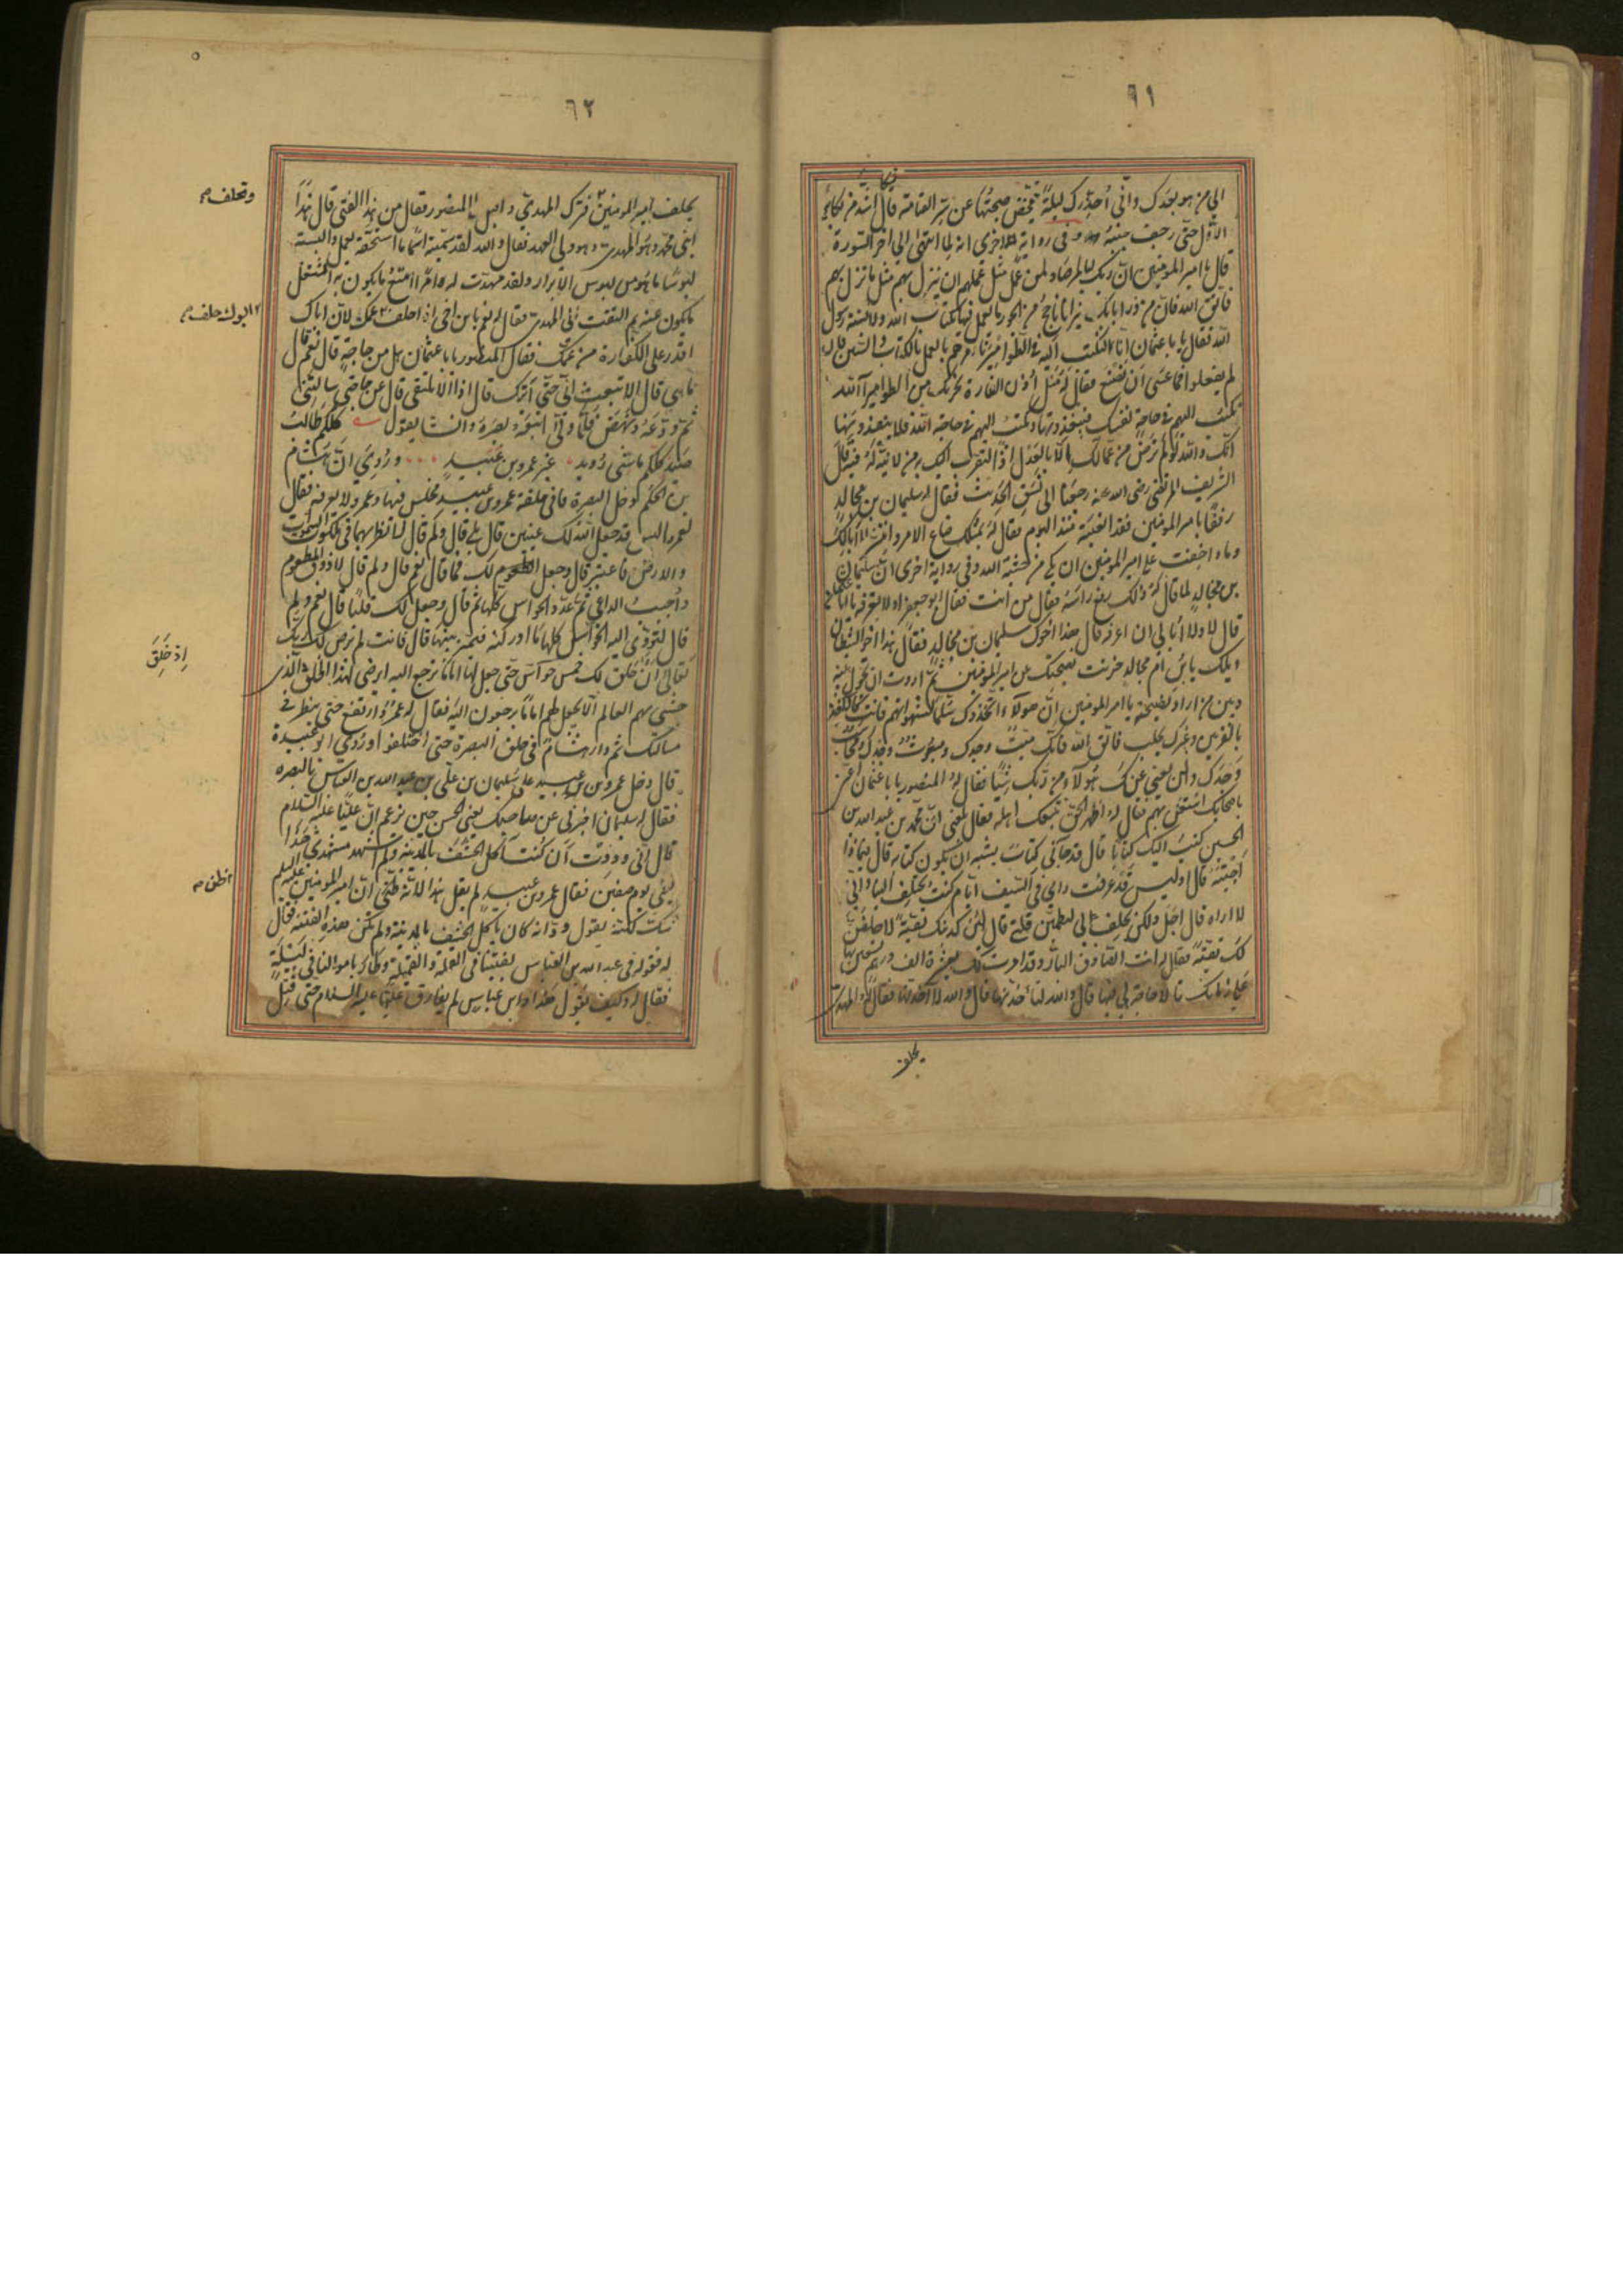 ٦١
الى من هو بعدك وانى أحذرك ليلة تمخض صبيحتها عن يوم القيامة قال فبكى اشد من بكائه
الاول حتى رجف جنبه وفى رواية اخرى انه لما انتهى الى اخر السورة
قال يا امير المومنين ان ربك لبالمرصاد لمن عمل مثل عملهم ان ينزل به مثل ما نزل بهم
فاتق الله فان من وراء بابك نيرانا تاجج من الجور ما يعمل فيها بكتاب الله ولا بسنة رسول
الله فقال يا با عثمان انا لنكتب اليهم فى الطوامير نامرهم بالعمل بالكتاب والسنن فان
لم يفعلوا فما عسى ان نصنع فقال له مثل اذن الفارة يجزيك من الطوامير آلله
تكتب اليهم فى حاجة نفسك فينفذونها وتكتب اليهم فى حاجة الله فلا ينفذونها
انك والله لو لم ترض من عمالك الا بالعدل اذا لتقرب اليك به من لا نية له فيه قال
الشريف المرتضى رضى الله عنه رجعنا الى نسق الحديث فقال له سليمان بن مجالد
رفقا بامير المومنين فقد اتعبته منذ اليوم فقال له بمثلك ضاع الامر وانتشر لا ابا لك
وماذا خفت على امير المومنين ان بكى من خشية الله وفى رواية اخرى ان سليمان
بن مجالد لما قال له ذلك رفع راسه فقال من انت فقال ابو جعفر اولا تعرفه يا ابا عثمان
قال لا ولا ابالى ان اعرفه قال هذا اخوك سليمان بن مجالد فقال هذا اخو الشيطان
ويلك يا بن ام مجالد خزنت نصيحتك عن امير المومنين ثم اردت ان تحول بينه
وبين من اراد نصيحته يا امير المومنين ان هولاء اتخذوك سلما لشهواتهم فانت كالماسك
بالقرنين وغيرك يحلب فاتق الله فانك ميت وحدك ومبعوث وحدك ومحاسب
وحدك ولن يغنى عنك هولاء من ربك شيئا فقال له المنصور يا با عثمان اعنى
باصحابك استعن بهم فقال له اظهر الحق يتبعك اهله فقال بلغنى ان محمد بن عبد الله بن
الحسن كتب اليك كتابا قال قد جآنى كتاب يشبه ان يكون كتابه قال فبماذا
اجبته قال اوليس قد عرفت رايى فى السيف ايام كنت تختلف الينا وانى
لا اراه قال اجل ولكن تحلف لى ليطمئن قلبى قال لئن كذبتك تقية لاحلفن
لك تقية فقال له انت الصادق البار وقد امرت لك بعشرة الف درهم تستعين بها
على زمانك قال لا حاجة لى فيها قال والله لتاخذنها قال والله لا اخذتها فقال له المهدى
يحلف
٦٢
يحلف امير المومنين فترك المهدى واقبل على المنصور فقال من هذا الفتى قال هذا
ابنى محمد وهو المهدى وهو ولى العهد فقال والله لقد سميته اسما ما استحقه بعمل والبسته
لبوسا ما هو من لبوس الابرار ولقد مهدت له امرا امتع ما يكون به اشغل
ما يكون عنه ثم التفت الى المهدى فقال له نعم يا بن اخى اذا حلف عمك لان اباك
اقدر على الكفارة من عمك فقال المنصور يا با عثمان هل من حاجة قال نعم قال
ما هى قال الا تبعث الى حتى آتيك قال اذا لا نلتقى قال عن حاجتى سالتنى
ثم ودعه ونهض فلما ولى اتبعه بصره وانشا يقول كلكم طالب
صيد كلكم ماشى رويد غير عمرو بن عبيد وروى ان هشام
بن الحكم دخل البصرة فاتى حلقة عمرو بن عبيد فجلس فيها وعمرو لا يعرفه فقال
لعمرو اليس قد جعل الله لك عينين قال بلى قال ولم قال لانظر بهما فى ملكوت السموات
والارض فاعتبر قال وجعل لك فما قال نعم قال ولم قال لاذوق المطعوم
واجيب الداعى ثم عدد الحواس كلها ثم قال وجعل لك قلبا قال نعم قال ولم
قال لتودى اليه الحواس كلها ما ادركته فيميز بينها قال فانت لم يرض لك ربك
تعالى ان خلق لك خمس حواس حتى جعل لها اماما ترجع اليه ايرضى لهذا الخلق الذى
حشى بهم العالم الا يجعل لهم اماما يرجعون اليه فقال له عمرو ارتفع حتى ننظر فى
مسالتك ثم دار هشام فى حلق البصرة حتى اختلفوا وروى ابو عبيدة
قال دخل عمرو بن عبيد على سليمان بن على بن عبد الله بن العباس بالبصره
فقال له سليمان اخبرنى عن صاحبك يعنى الحسن حين يزعم ان عليا عليه السلام
قال انى وددت ان كنت آكل الحشف بالمدينة ولم اشهد مشهدى هذا
يعنى يوم صفين فقال عمرو بن عبيد لم يقل هذا لانه ظن ان امير المومنين عليه السلم
شك لكنه يقول ود انه كان ياكل الحشف بالمدينة ولم تكن هذه الفتنة فقال
له فقوله فى عبد الله بن العباس يفتينا فى القملة والقميلة وطار باموالنا فى ليلة
فقال له وكيف يقول هذا وابن عباس لم يفارق عليا عليه السلام حتى قتل
وتحلف
ابوك حلف
اذ خلق